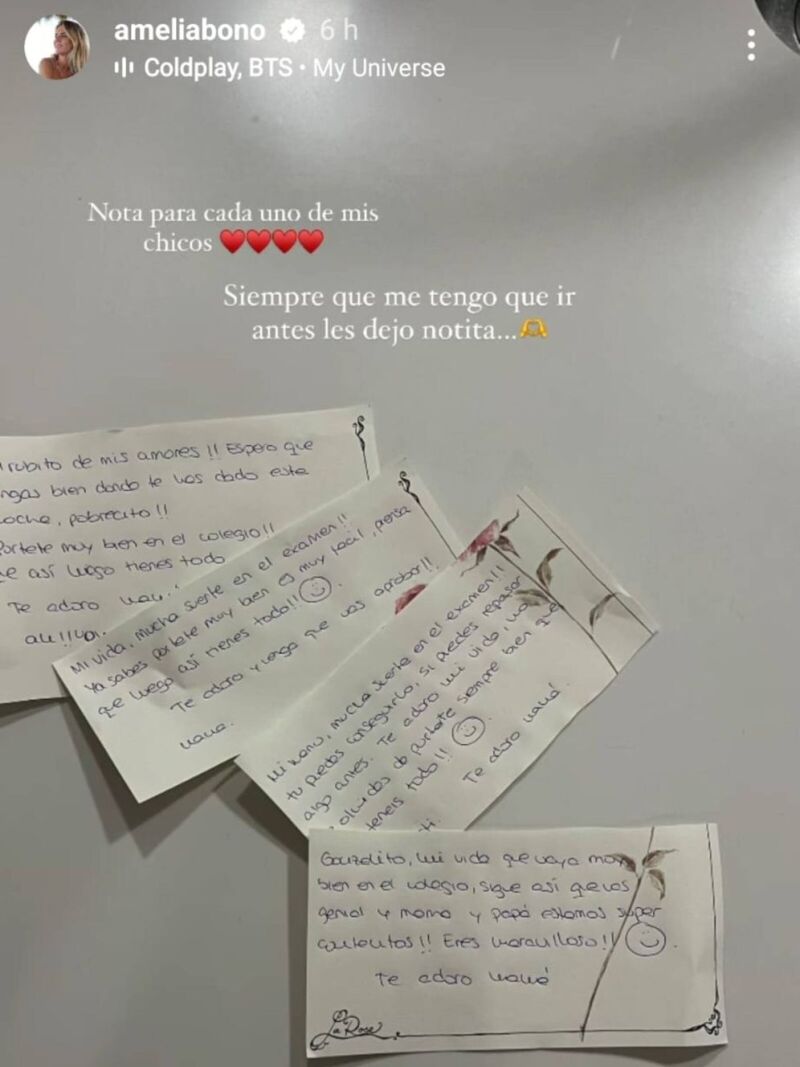 ameliabono 6 h
Coldplay, BTS • My Universe
Nota para cada uno de mis
chicos ♥️♥️♥️♥️
Siempre que me tengo que ir
antes les dejo notita...🫶
rubito de mis amores !! Espero que
ngas bien donde te has dado esta
oche, pobrecito !!
Portete muy bien en el colegio!!
e así luego tienes todo
Te adoro
Mi vida, mucha suerte en el examen!!
Ya sabes portete muy bien es muy facil, piensa
que luego así tienes todo!!
Te adoro y luego que vas aprobar!!
mama.
Mi mucha suerte en el examen!!
tu puedes conseguirlo, si puedes repasar
algo antes. Te adoro mi vida, no
olvides de portarte siempre bien que
teneis todo!!
Te adoro mamá.
Gonzalito, mi vida que vaya muy
bien en el colegio, sigue así que vas
genial y mama y papá estamos super
contentos!! Eres maravilloso!!
Te adoro mamá
La Rose